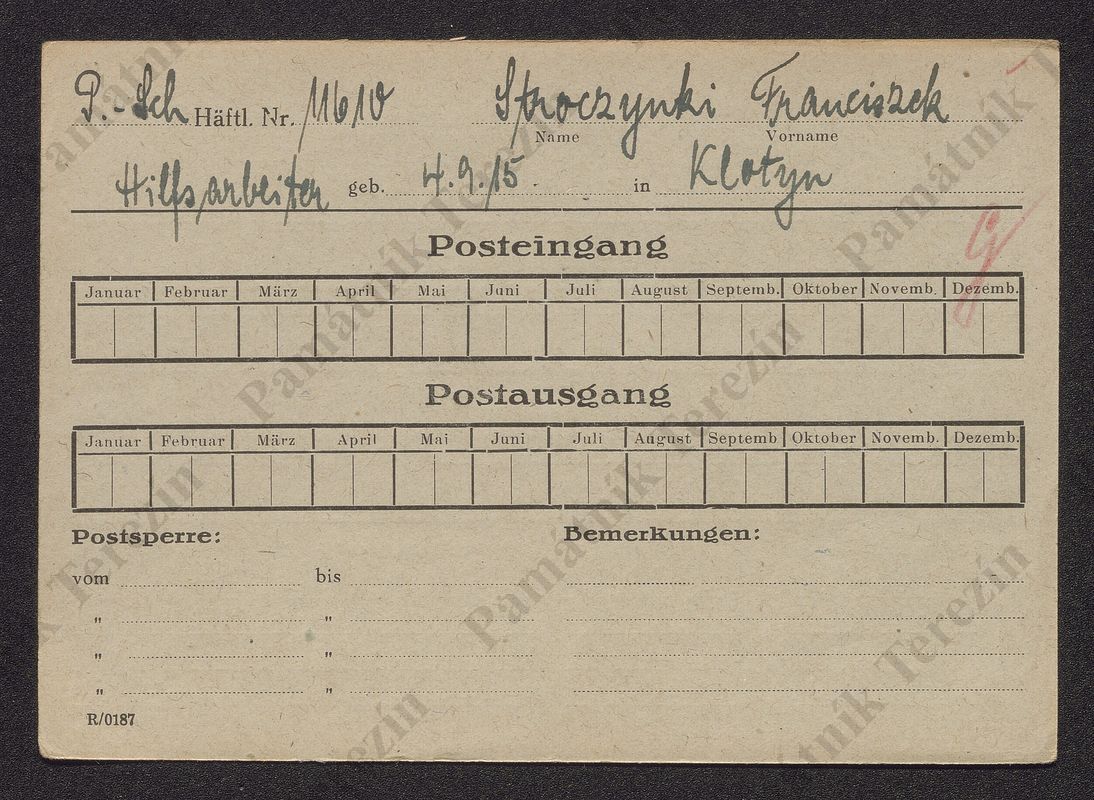 P.-Sch Häftl. Nr. 11610 Stroczynki Franciszek
Name Vorname
Hilfsarbeiter geb. 4.9.15. in Klotyn
Posteingang
Januar Februar März April Mai Juni Juli August Septemb. Oktober Novemb. Dezemb.
Postausgang
Januar Februar März April Mai Juni Juli August Septemb Oktober Novemb. Dezemb.
Postsperre: Bemerkungen:
vom bis
" "
" "
" "
R/0187
Památník Terezín